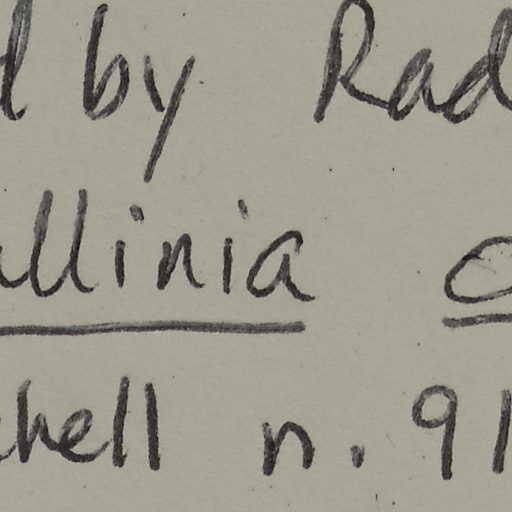 d by Rad
allinia c
chell n. 91